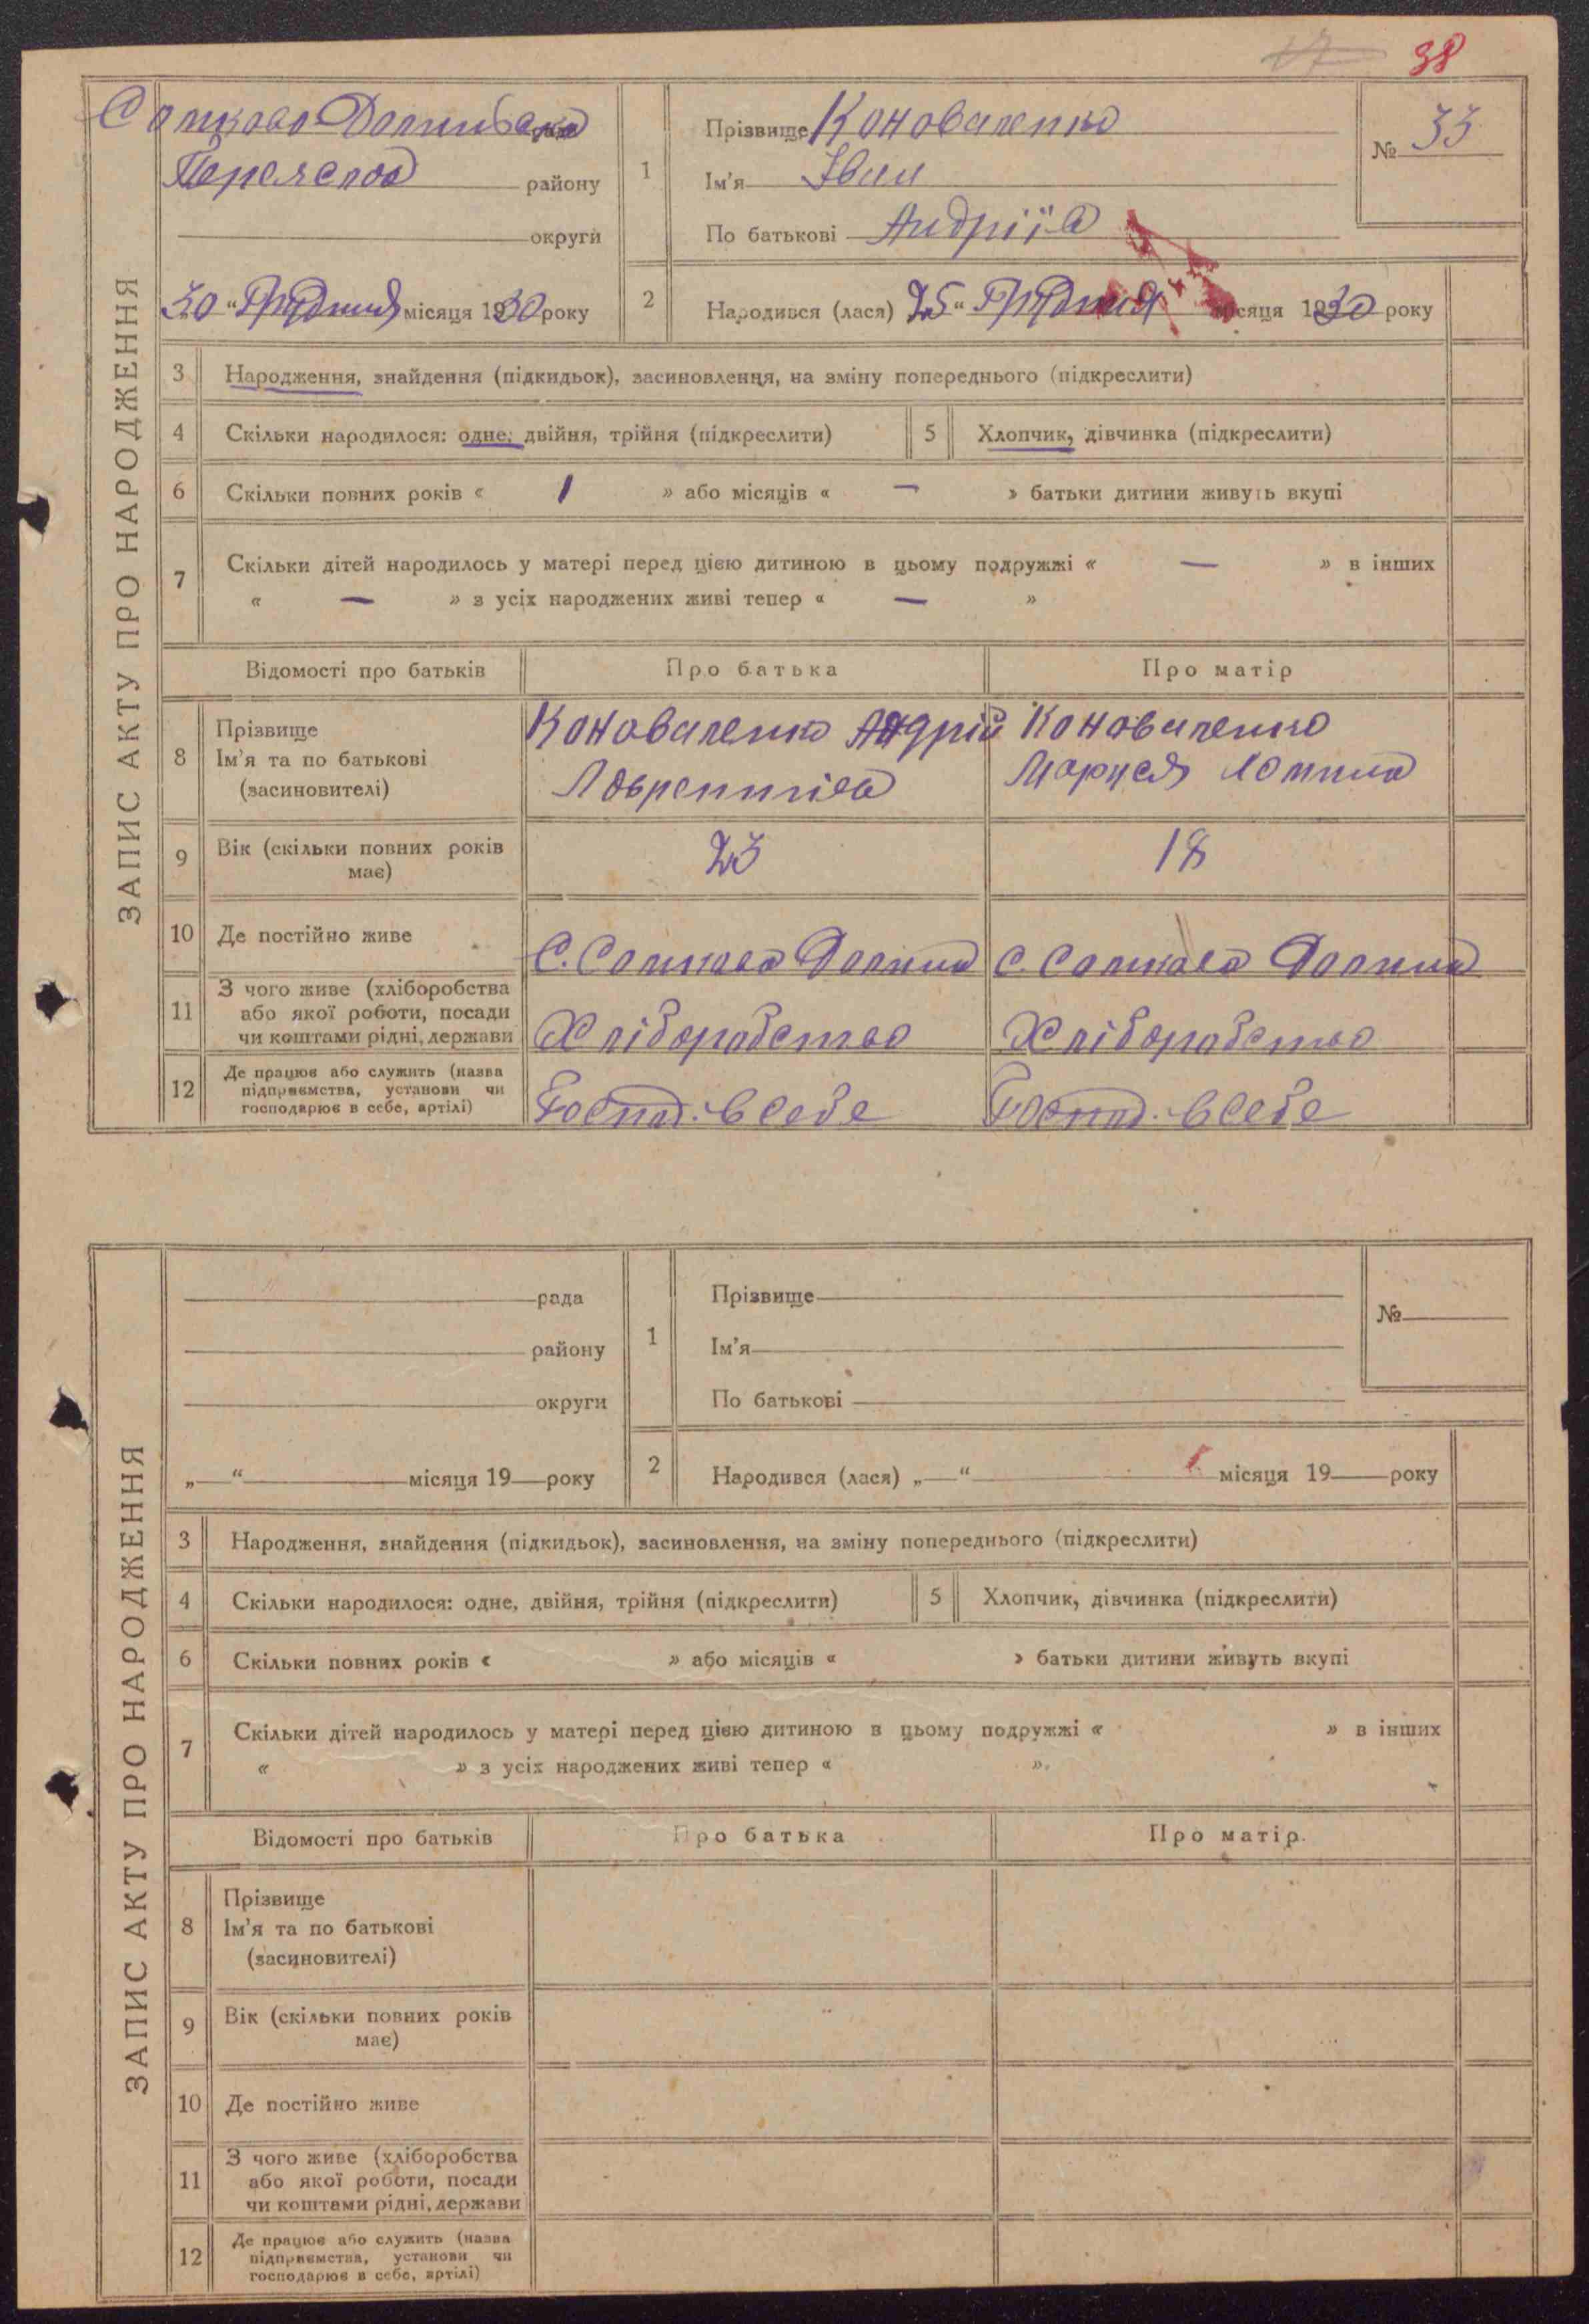 17 38
ЗАПИС АКТУ ПРО НАРОДЖЕННЯ
району
округи
30 “ Грудня місяця 1930 року
1
Прізвище Коноваленко
Ім’я Іван
По батькові Андріїв
№ 33
2
Народився (лася) 25 “ Грудня місяця 1930 року
3 Народження, знайдення (підкидьок), засиновлення, на зміну попереднього (підкреслити)
4 Скільки народилося: одне, двійня, трійня (підкреслити) 5 Хлопчик, дівчинка (підкреслити)
6 Скільки повних років « 1 » або місяців « — » батьки дитини живуть вкупі
7 Скільки дітей народилось у матері перед цією дитиною в цьому подружжі « — » в інших
« — » з усіх народжених живі тепер « — »
Відомості про батьків Про батька Про матір
8 Прізвище
Ім’я та по батькові
(засиновителі)
Коноваленко Андрій
Коноваленко
Маруся
9 Вік (скільки повних років
має)
23 18
10 Де постійно живе
С. Сомкова Долина С. Сомкова Долина
11 З чого живе (хліборобства
або якої роботи, посади
чи коштами рідні, держави
Хліборобство Хліборобство
12 Де працює або служить (назва
підприємства, установи чи
господарює в себе, артілі)
Господ. в себе Господ. в себе
ЗАПИС АКТУ ПРО НАРОДЖЕННЯ
рада
району
округи
„ “ місяця 19 року
1
Прізвище
Ім’я
По батькові
№
2
Народився (лася) „ “ місяця 19 року
3 Народження, знайдення (підкидьок), засиновлення, на зміну попереднього (підкреслити)
4 Скільки народилося: одне, двійня, трійня (підкреслити) 5 Хлопчик, дівчинка (підкреслити)
6 Скільки повних років « » або місяців « » батьки дитини живуть вкупі
7 Скільки дітей народилось у матері перед цією дитиною в цьому подружжі « » в інших
« » з усіх народжених живі тепер « »
Відомості про батьків Про батька Про матір
8 Прізвище
Ім’я та по батькові
(засиновителі)
9 Вік (скільки повних років
має)
10 Де постійно живе
11 З чого живе (хліборобства
або якої роботи, посади
чи коштами рідні, держави
12 Де працює або служить (назва
підприємства, установи чи
господарює в себе, артілі)